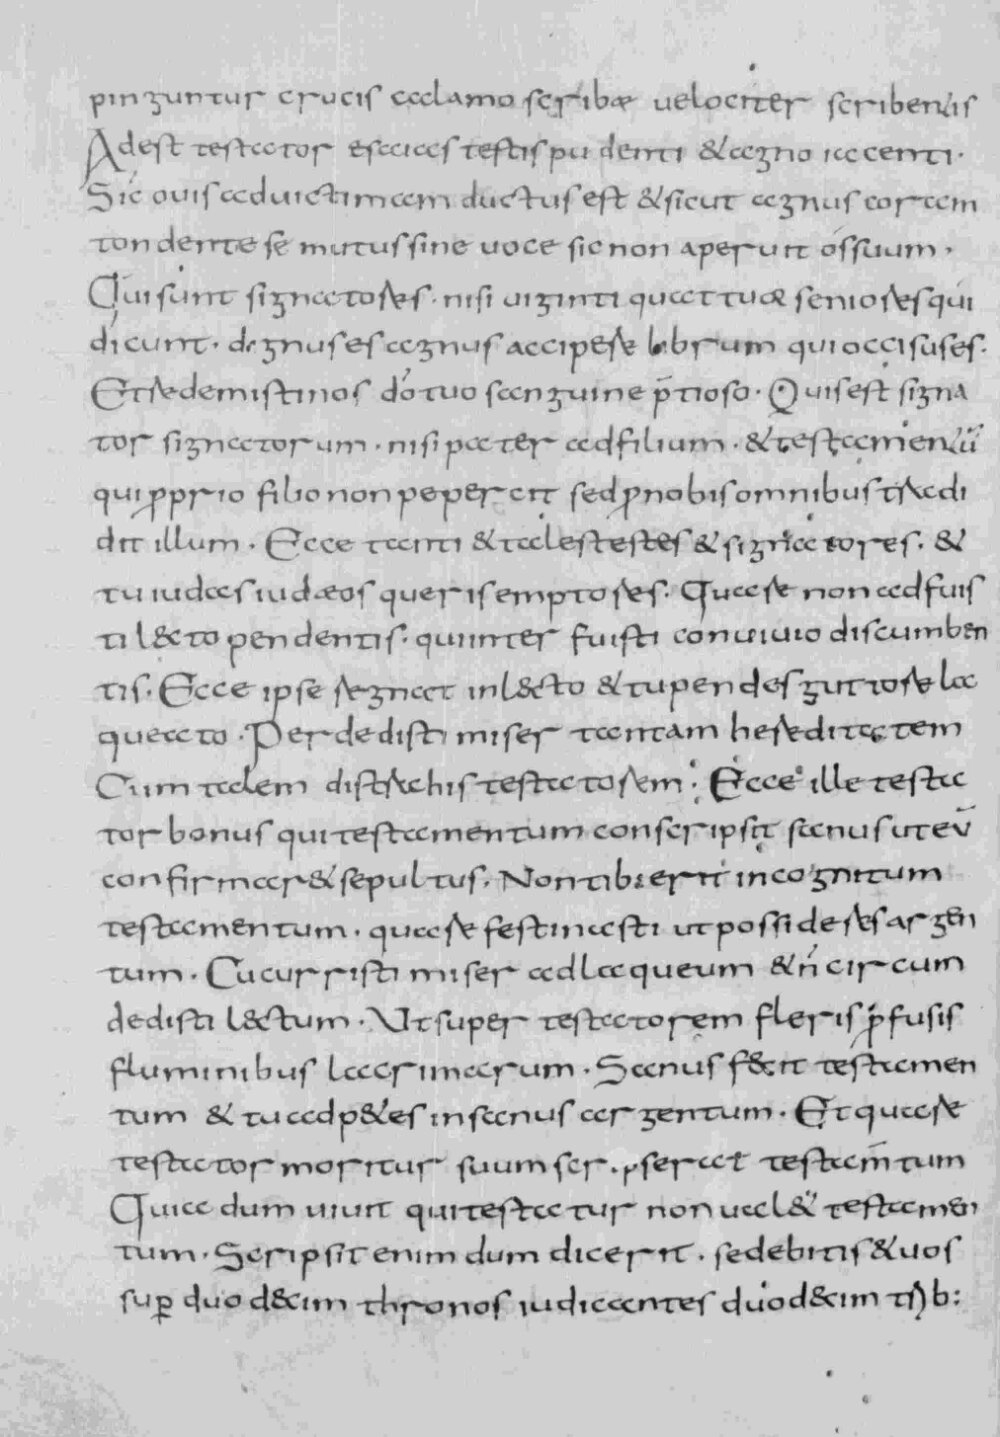 pinguntur crucis calamo scribæ uelociter scribentis
Adest testator esaias testis pudenti & agno iacenti.
Sic ouis ad uictimam ductus est & sicut agnus coram
tondente se mutus sine uoce sic non aperuit os suum.
Qui sunt signatores. nisi uiginti quattuor seniores qui
dicunt. dignus es agnus accipere librum qui occisus es.
Et redemisti nos dō tuo sanguine p̄tioso. Quis est signa
tor signatorum. nisi pater ad filium. & testamentū
qui proprio filio non pepercit sed pro nobis omnibus tradi
dit illum. Ecce tanti & tales testes & signatores. &
tu iudas iudæos queris emptores. Quare non ad fuis
ti l&to pendentis. qui inter fuisti conuiuio discumben
tis. Ecce ipse regnat in l&cto & tu pendes guttore la
queato. Perdedisti miser tantam hereditatem
Cum talem distrahis testatorem. Ecce ille testa
tor bonus qui testamentum conscripsit sanus ut eū
confirmar& sepultus. Non tibi erit incognitum
testamentum. quare festinasti ut possideres argen
tum. Cucurristi miser ad laqueum & ń circum
dedisti l&ctum. Ut super testatorem fleris profusis
fluminibus lacrimarum. Sanus f&cit testamen
tum & tu adp&es insanus argentum. Et quare
testator moritur suum scr. p serat testam̄tum
Quia dum uiuit qui testatur non ual& testamen
tum. Scripsit enim dum dicerit. sedebitis & uos
sup duod&cim thronos iudicantes duod&cim trib: